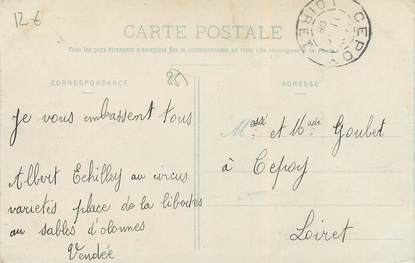 12€
CARTE POSTALE
Tous les pays étrangers n'acceptent pas la correspondance au recto
CEPOY
LOIRET
CORRESPONDANCE
85
ADRESSE
Je vous embrassent tous
Albert Echilley au circus
varietés place de la libertés
au sables d'olonnes
Vendée
et Made Goubet
à Cepoy
Loiret